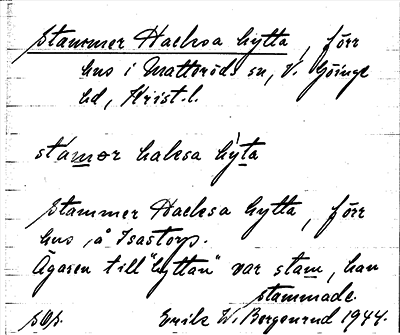 Stammer Hacksa hytta, förr
hus i Matteröds sn, V. Göinge
hd, Krist. l.
stamər haksa hyta
Stammer Hacksa hytta, förr
hus å Isastorp.
Ägaren till "hyttan" var stam, han
stammade.
Erik W. Bergenrud 1944.